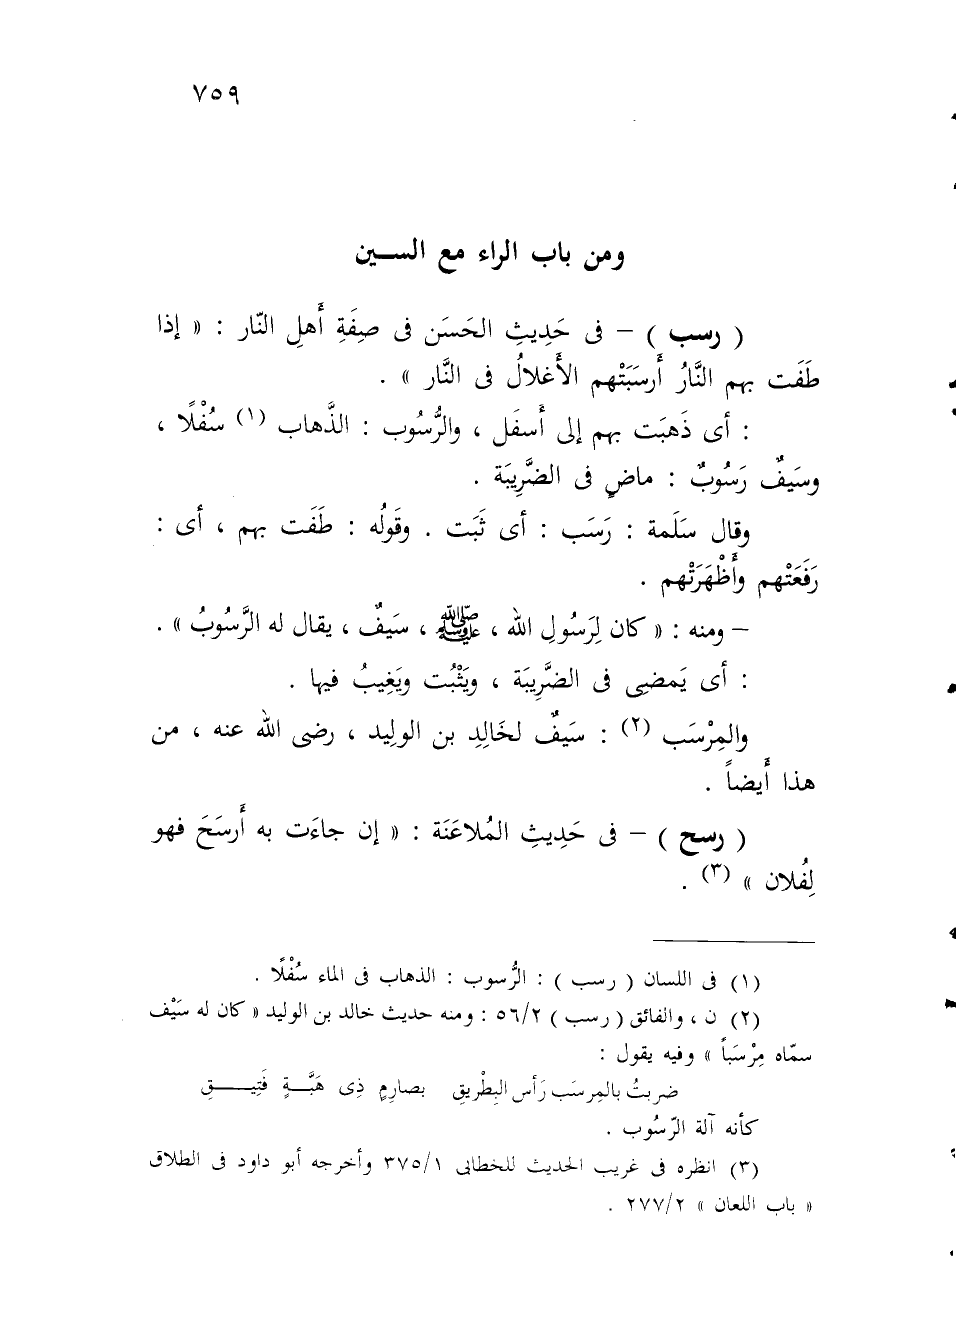 ٧٥٩
ومن باب الراء مع السـين
( رسب ) – فى حَدِيثِ الحَسَن فى صِفَةِ أَهلِ النّار : « إذا
طَفَت بهم النَّارُ أَرسَبَتْهم الأَغلالُ فى النَّار » .
: أى ذَهبَت بهم إلى أَسفَل ، والرُّسُوب : الذَّهاب (١) سُفْلًا ،
وسَيفٌ رَسُوبٌ : ماضٍ فى الضَّرِيبَة .
وقال سَلَمة : رَسَب : أى ثَبَت . وقَولُه : طَفَت بهم ، أى :
رَفَعَتْهم وأَظْهَرَتْهم .
– ومنه : « كان لِرَسُولِ الله ، ﷺ ، سَيفٌ ، يقال له الرَّسُوبُ » .
: أى يَمضِى فى الضَّرِيبَة ، ويَثْبُت ويَغِيبُ فيها .
والمِرْسَب (٢) : سَيفٌ لخَالِدِ بن الولِيد ، رضى الله عنه ، من
هذا أَيضاً .
( رسح ) – فى حَدِيثِ المُلاعَنَة : « إن جاءَت به أَرسَحَ فهو
لِفُلان » (٣) .
(١) فى اللسان ( رسب ) : الرُّسوب : الذهاب فى الماء سُفْلًا .
(٢) ن ، والفائق ( رسب ) ٥٦/٢ : ومنه حديث خالد بن الوليد « كان له سَيْف
سمّاه مِرْسَباً » وفيه يقول :
ضربتُ بالمِرسَب رَأس البِطْريق بصارِمٍ ذِى هَبَّـةٍ فَتِيـــق
كأنه آلة الرّسُوب .
(٣) انظره فى غريب الحديث للخطابى ٣٧٥/١ وأخرجه أبو داود فى الطلاق
« باب اللعان » ٢٧٧/٢ .